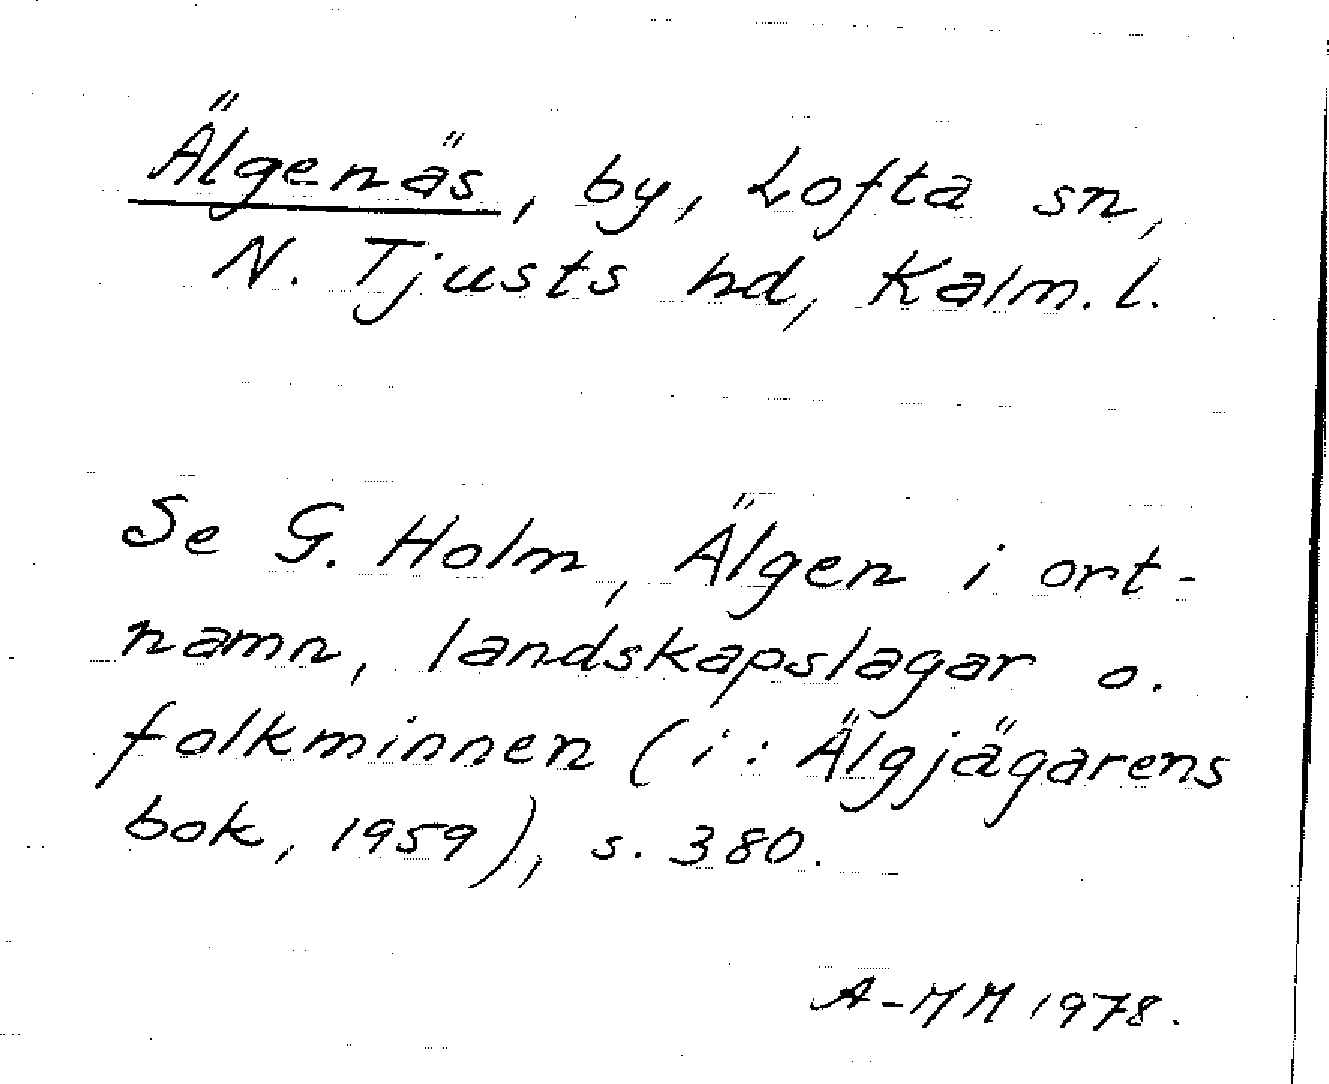 Älgenäs, by, Lofta sn,
N. Tjusts hd, Kalm. l.
Se G. Holm, Älgen i ort-
namn, landskapslagar o.
folkminnen (i: Älgjägarens
bok, 1959), s. 380.
A-MM 1978.